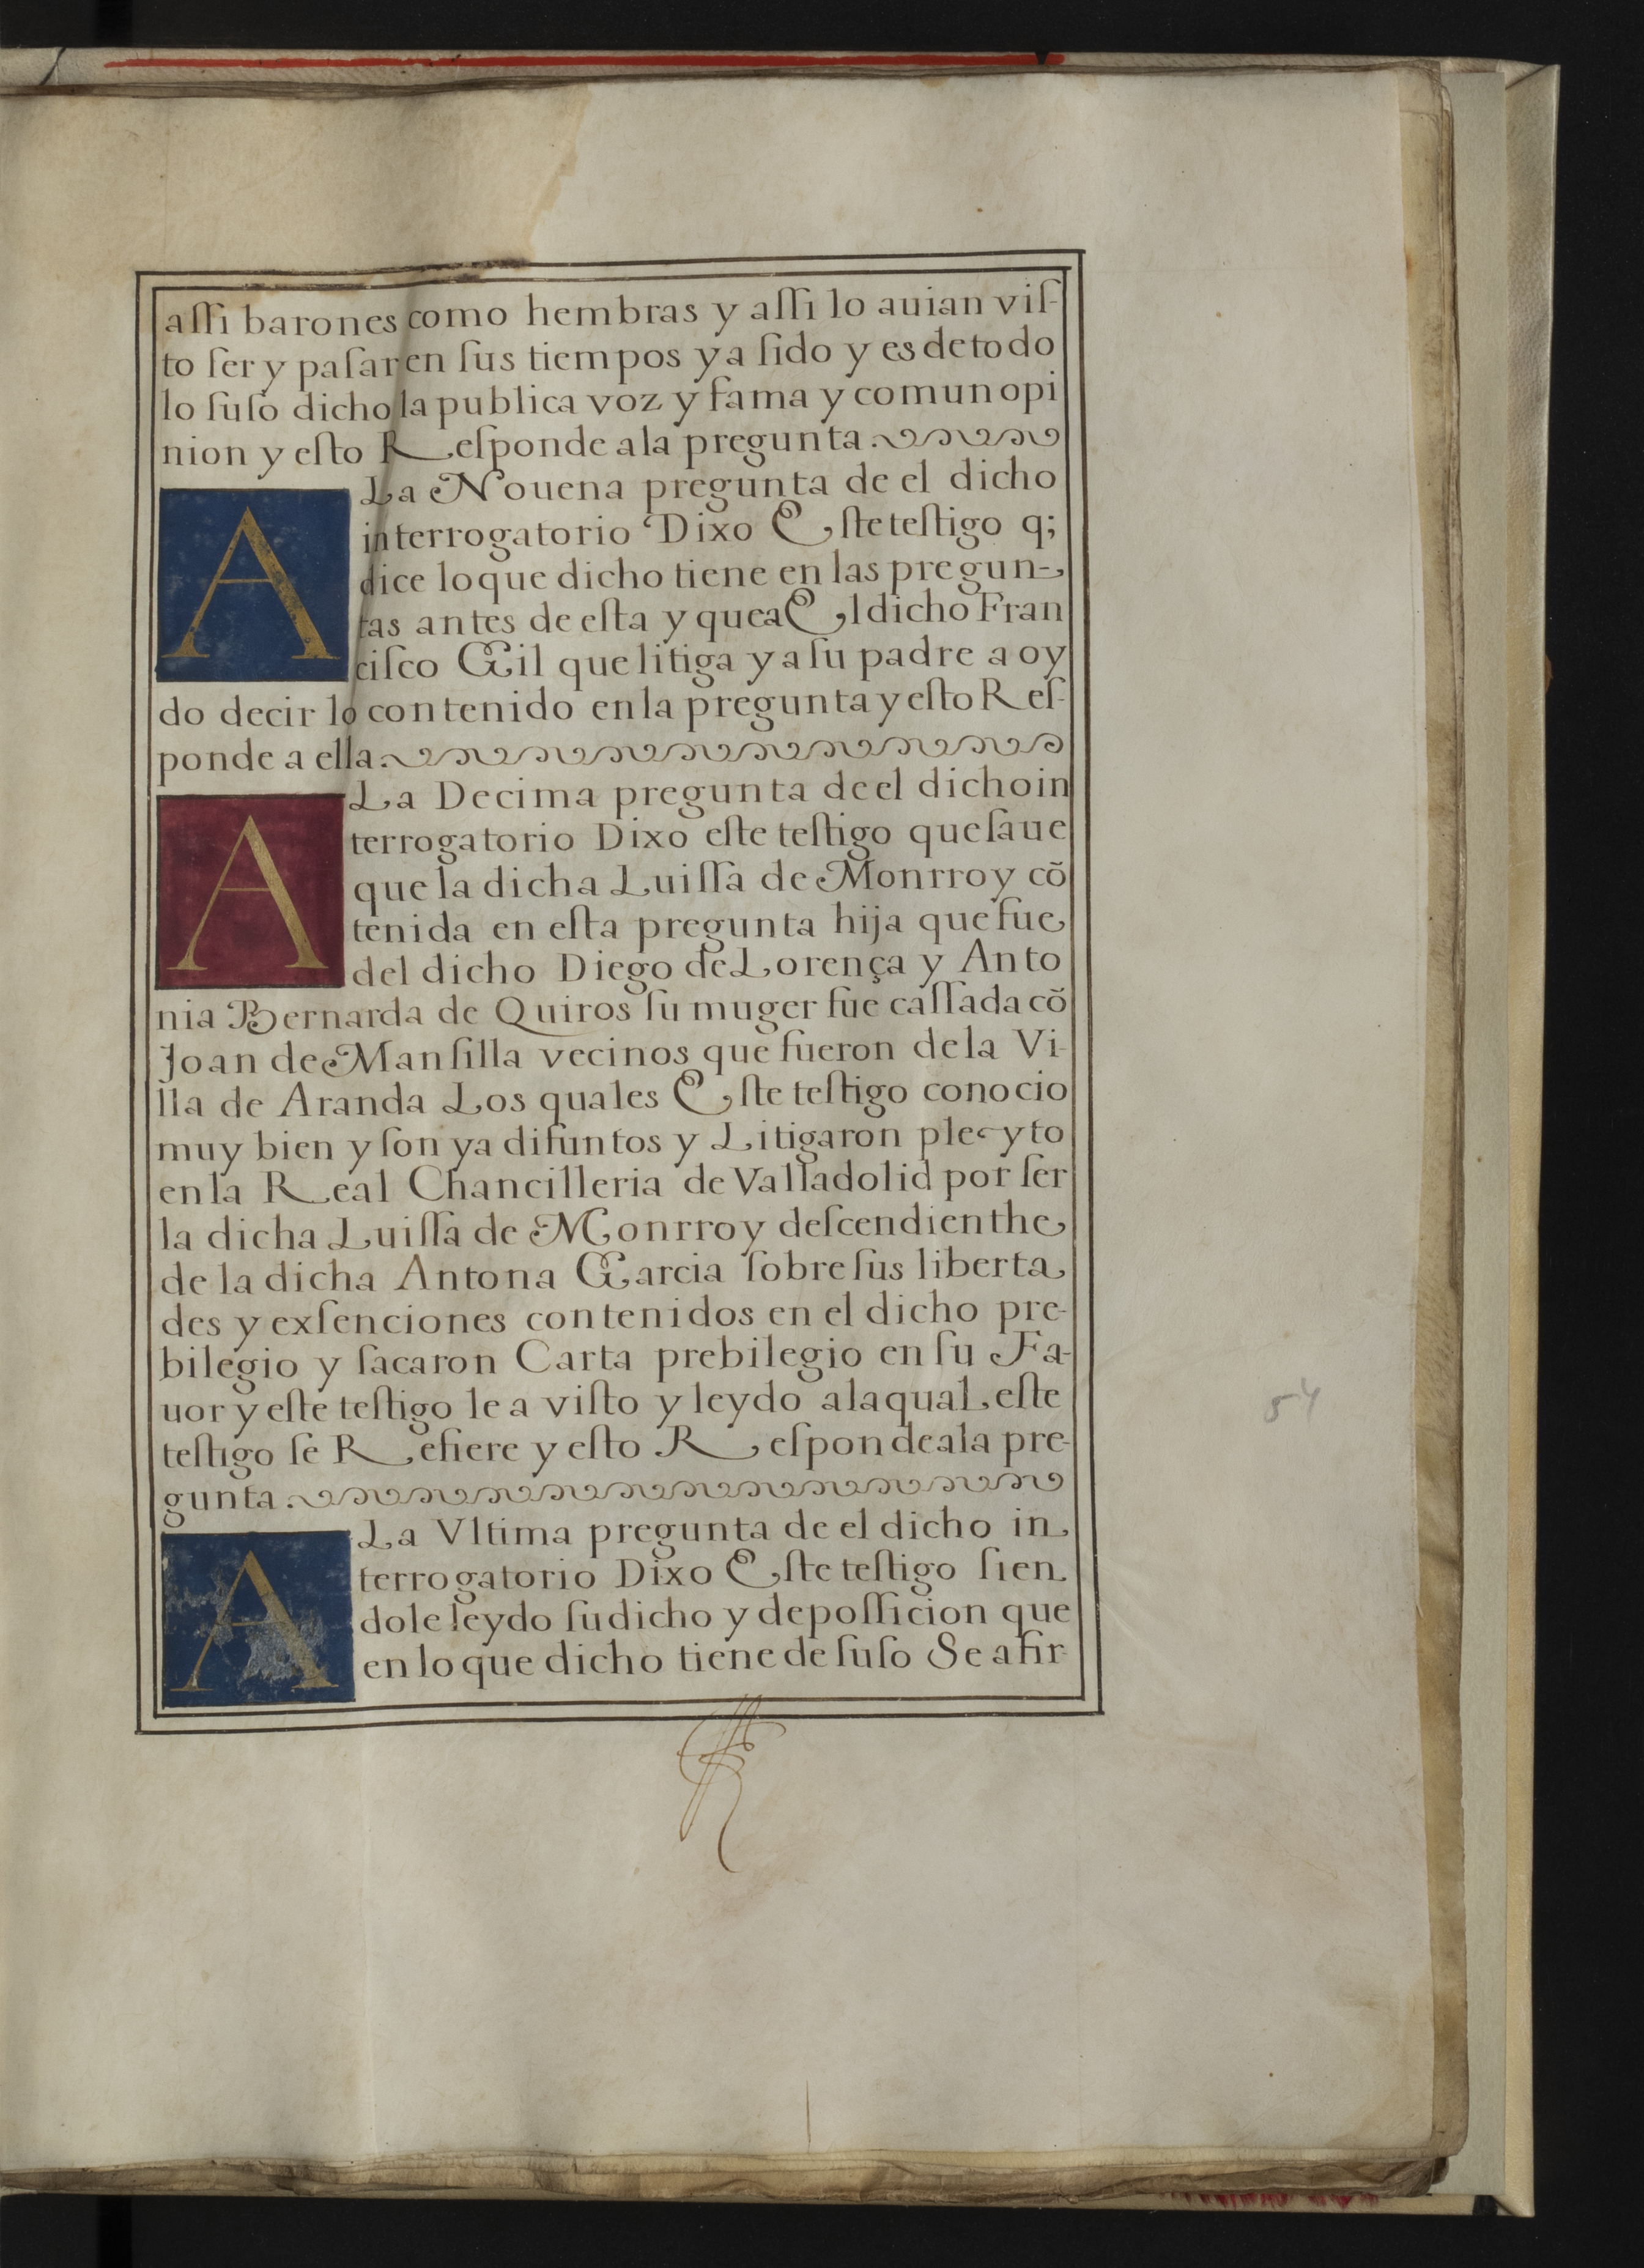 aſſi barones como hembras y aſſi lo auian viſ-
to ſer y paſar en ſus tiempos y a ſido y es de todo
lo ſuſo dicho la publica voz y fama y comun opi
nion y eſto Reſponde a la pregunta.
A La Nouena pregunta de el dicho
interrogatorio Dixo Eſte teſtigo q;
dice lo que dicho tiene en las pregun-
tas antes de eſta y que a El dicho Fran
ciſco Gil que litiga y a ſu padre a oy
do decir lo contenido en la pregunta y eſto Reſ-
ponde a ella.
A La Decima pregunta de el dicho in
terrogatorio Dixo eſte teſtigo que ſaue
que la dicha Luiſſa de Monrroy cõ
tenida en eſta pregunta hija que fue
del dicho Diego de Lorença y Anto
nia Bernarda de Quiros ſu muger fue caſſada cõ
Joan de Manſilla vecinos que fueron de la Vi-
lla de Aranda Los quales Eſte teſtigo conocio
muy bien y ſon ya difuntos y Litigaron pleyto
en la Real Chancilleria de Valladolid por ſer
la dicha Luiſſa de Monrroy deſcendienthe
de la dicha Antona Garcia ſobre ſus liberta
des y exſenciones contenidos en el dicho pre-
bilegio y ſacaron Carta prebilegio en ſu Fa-
uor y eſte teſtigo le a viſto y leydo a la qual eſte
teſtigo ſe Refiere y eſto Reſponde a la pre-
gunta.
A La Vltima pregunta de el dicho in
terrogatorio Dixo Eſte teſtigo ſien
dole leydo ſu dicho y depoſſicion que
en lo que dicho tiene de ſuſo Se afir-
54